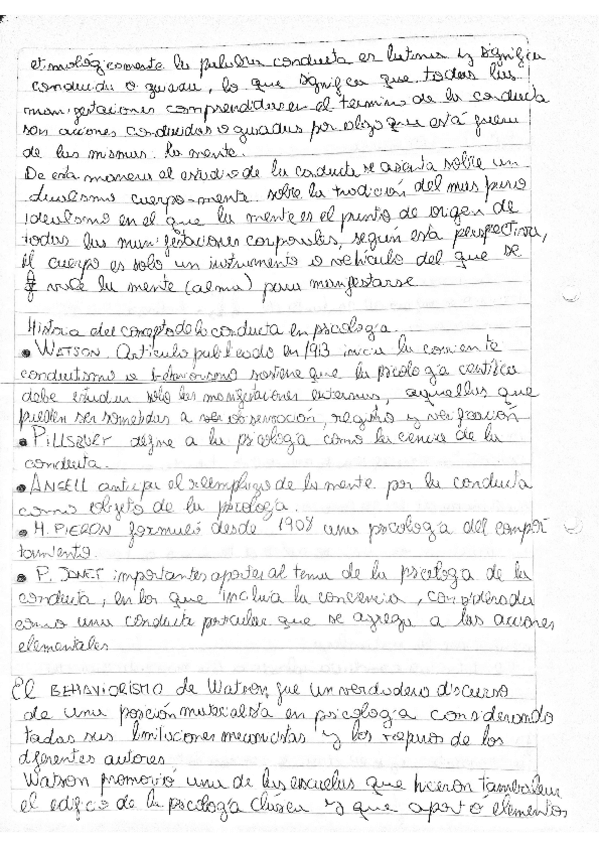 etimológicamente la palabra conducta es latina y significa
conducida o guiada, lo que significa que todas las
manifestaciones comprendidas en el termino de la conducta
son acciones conducidas o guiadas por algo que está fuera
de las mismas: la mente.
De esta manera el estudio de la conducta se asienta sobre un
dualismo cuerpo-mente sobre la tradición del mas puro
idealismo en el que la mente es el punto de origen de
todas las manifestaciones corporales, según esta perspectiva,
el cuerpo es solo un instrumento o vehículo del que se
vale la mente (alma) para manifestarse
Historia del concepto de la conducta en psicología.
• WATSON. Artículo publicado en 1913 inicia la corriente
conductismo o behaviorismo sostiene que la psicología científica
debe estudiar solo las manifestaciones externas, aquellas que
pueden ser sometidas a observación, registro y verificación
• PILLSBURY define a la psicología como la ciencia de la
conducta.
• ANGELL anticipa el reemplazo de la mente por la conducta
como objeto de la psicología.
• H. PIERON formuló desde 1908 una psicología del compor
tamiento.
• P. JANET importantes aportes al tema de la psicología de la
conducta, en los que incluía la conciencia, considerada
como una conducta particular que se agrega a las acciones
elementales
El BEHAVIORISMO de Watson fue un verdadero discurso
de una posición materialista en psicología considerando
todas sus limitaciones mecanicistas y los reparos de los
diferentes autores
Watson promovió una de las escuelas que hicieron tambalear
el edificio de la psicología clásica y que aportó elementos